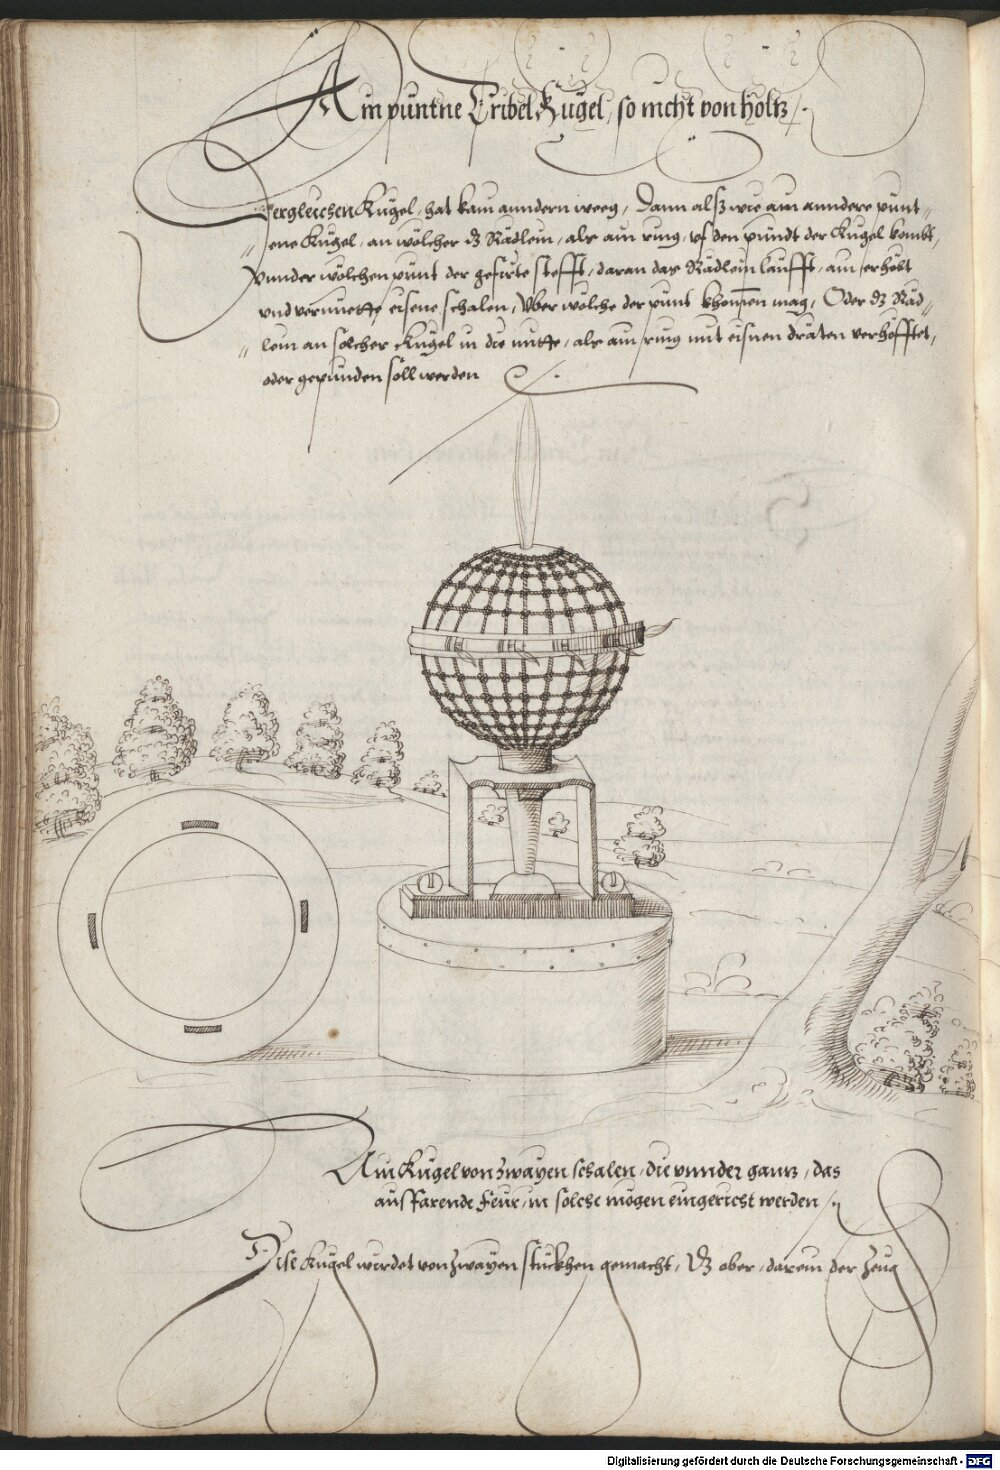 Ain puntne Tribel Kugel, so nicht von holtz
Dergleichen Kugel, hat kain anndern weeg, Dann alß wie ain anndere punt„
„ene Kugel, an wölcher dz Rädlein, alß ain ring, uf den pundt der Kugel kombt,
Vnnder wölchen punt der gefirte stefft, daran das Rädlein laufft, ain erhebt
vnd vernuette eisene schalen, Vber wölche der punt khommen mag, Oder dz Räd„
„lein an solcher Kugel in die mitte, als ain ring mit eisnen dräten verhefftet,
oder gepunden soll werden
Ain Kugel von zwayen schalen, die vnnder gantz, das
ausfarende feur, in solche mögen eingericht werden
Dise Kugel wirdet von zwayen stückhen gemacht, Dz ober, darein der zeug
Digitalisierung gefördert durch die Deutsche Forschungsgemeinschaft - DFG